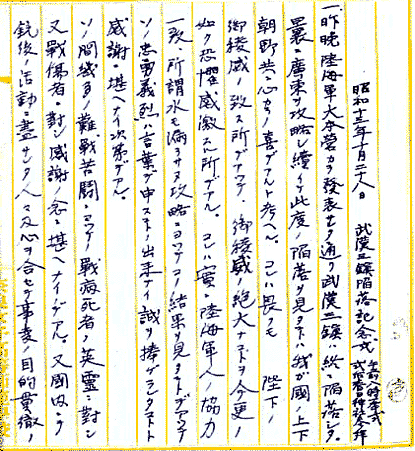 昭和十三年十月二十八日　武漢三鎮陥落記念式
午前八時本式
式後春日神社参拝
一、昨晩陸海軍大本営カラ発表セシ通リ武漢三鎮ハ終ニ陥落シタ。
曩ニ廣東ヲ攻略シ續イテ此度ノ陥落ヲ見タコトハ我ガ國ノ上下
朝野共ニ心カラ喜ブデアルト考ヘル。コレハ畏クモ　陛下ノ
御稜威ノ致ス所デアツテ、御稜威ノ絶大ナコトヲ今更ノ
如ク恐懼感激スル所デアル。コレハ實ニ陸海軍人ノ協力
一致、所謂水モ漏ラサヌ攻略ニヨツテコノ結果ヲ見タコトデアツテ
ソノ忠勇義烈ハ言葉デ申スコトノ出来ナイ誠ヲ捧ゲラレタコト
感謝ニ堪ヘナイ次第デアル。
ソノ間幾多ノ難戦苦闘ニヨツテ戦病死者ノ英霊ニ對シ
又戦傷者ニ對シ感謝ノ念ニ堪ヘナイデアル。又國内ニテ
銃後ノ活動ニ盡サレタ人々及心ヲ合セテ事変ノ目的貫徹ノ